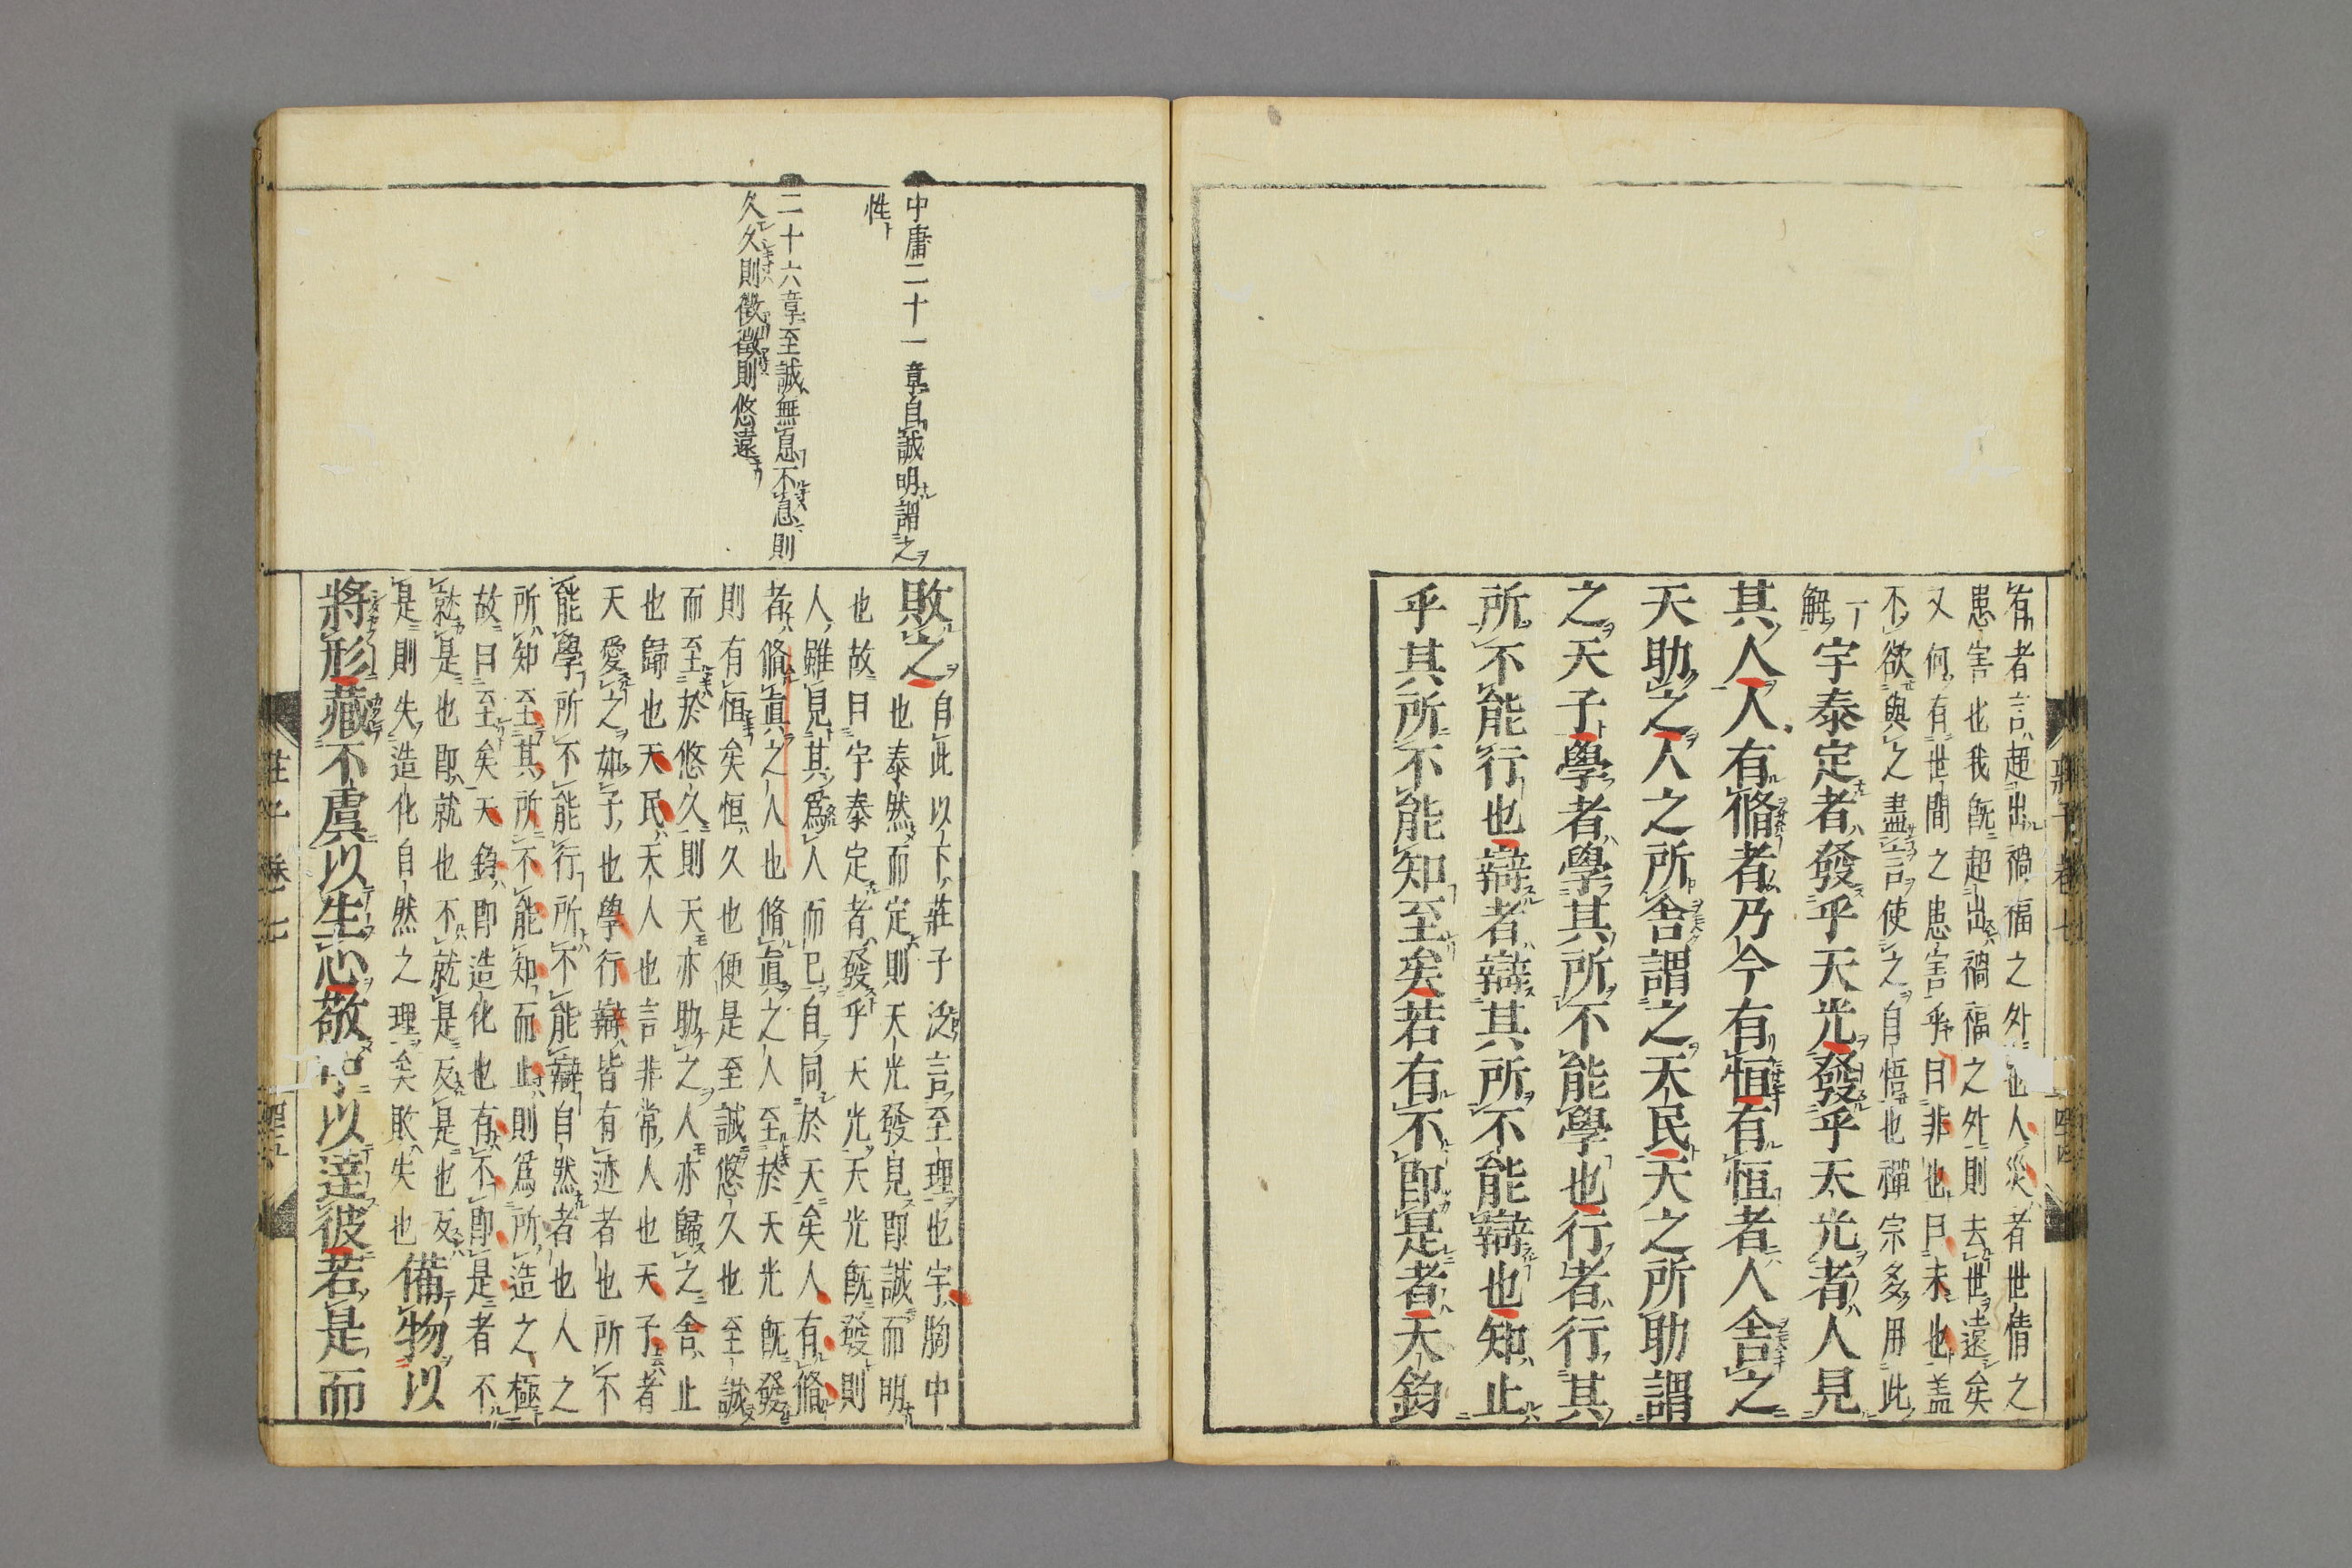 有者言超出禍福之外也人災者世情之
患害也我既超出禍福之外則去世遠矣
又何有世間之患害乎曰非也曰未也盖
不欲與之盡言使之自悟也禪宗多用此
一解
宇泰定者發乎天光發乎天光者人見
其人人有脩者乃今有恒有恒者人舍之
天助之人之所舍謂之天民天之所助謂
之天子學者學其所不能學也行者行其
所不能行也辯者辯其所不能辯也知止
乎其所不能知至矣若有不即是者天鈞
中庸二十一章自誠明謂之
性
二十六章至誠無息不息則
久久則徵徵則悠遠
敗之
自此以下莊子泛言至理也宇胸中
也泰然而定則天光發見即誠而明
也故曰宇泰定者發乎天光天光既發則
人雖見其爲人而已自同於天矣人有脩
者脩眞之人也脩眞之人至於天光既發
則有恒矣恒久也便是至誠悠久也至誠
而至於悠久則天亦助之人亦歸之舍止
也歸也天民天人也言非常人也天子者
天愛之如子也學行辯皆有迹者也所不
能學所不能行所不能辯自然者也人之
所知至其所不能知而止則爲所造之極
故曰至矣天鈞即造化也有不即是者不
就是也即就也不就是反是也反
是則失造化自然之理矣敗失也
備物以
將形藏不虞以生心敬中以達彼若是而
莊子卷七